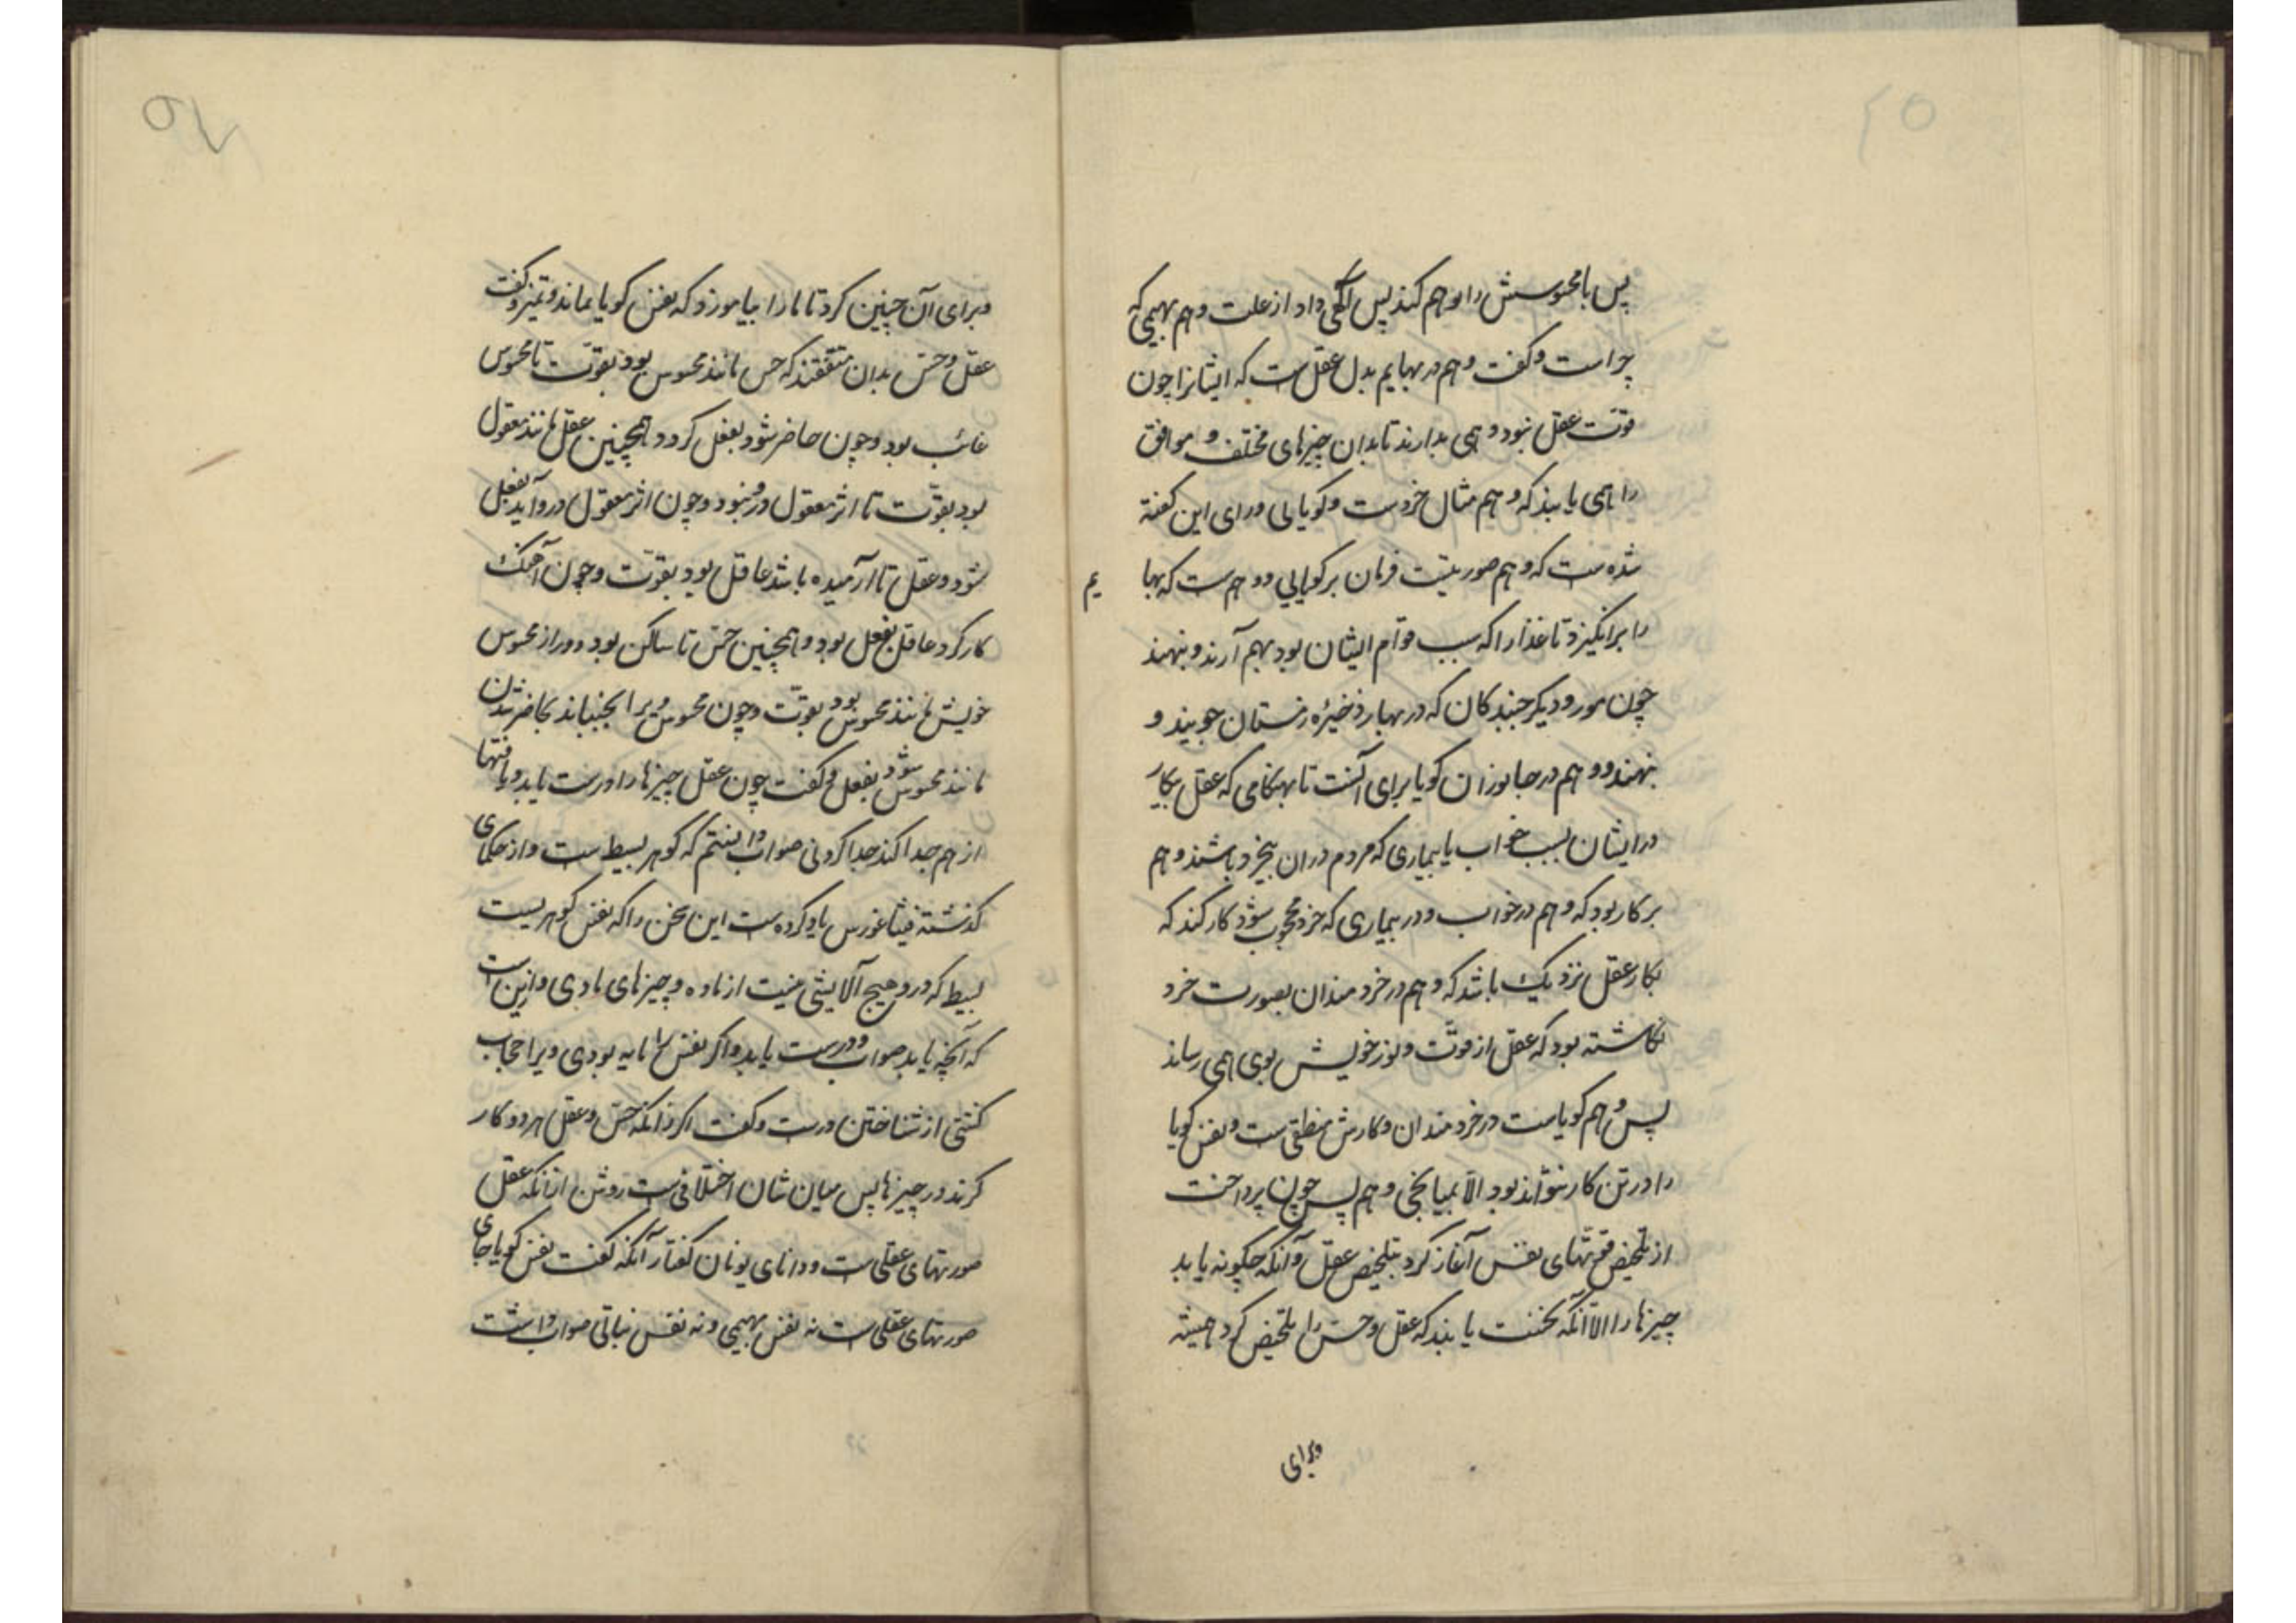 پس با محسوسش را وهم کند پس آگهی داد از علت وهم بهیمی که
چراست و گفت وهم در بهایم بدل عقل ست که ایشانرا چون
قوت عقل نبود وهمی بدارند تا بدان چیزهای مختلف و موافق
را همی یابند که وهم مثال خردست و گویایی ورای این گفته
شده ست که وهم صورتیست فرمان بر گویایی و وهم ست که بها
یم
را برانگیزد تا غذا را که سبب قوام ایشان بود بهم آرند و بنهند
چون مور و دیگر جنبندکان که در بهار ذخیره زمستان جویند و
بنهند و وهم در جانوران گویا برای آنست تا بهنگامی که عقل بیکار
در ایشان بسبب خواب یا بیماری که مردم در ان بیخرد باشند وهم
بر کار بود که وهم در خواب و در بیماری که خرد محجوب شود کار کند که
بکار عقل نزدیک باشد که وهم در خردمندان بصورت خرد
نگاشته بود که عقل از قوت و نور خویش بوی همی رساند
پس وهم گویاست در خردمندان و کارش منطقی ست و نفس گویا
را در تن کار نتواند بود الا بمیانجی وهم پس چون پرداخت
از تلخیص قوتهای نفس آغاز کرد بتلخیص عقل و آنکه چگونه یابد
چیزها را الا آنکه نخست یابند که عقل و حس را تلخیص کرد همیشه
وبرای
وبرای آن چنین کرد تا ما را بیاموزد که نفس گویا بماند و تمیز و گفت
عقل و حس بدان متفقند که حس مانند محسوس بود بقوت تا محسوس
غائب بود و چون حاضر شود بفعل گردد و همچنین عقل مانند معقول
بود بقوت تا اثر معقول درو نبود و چون اثر معقول درو آید بفعل
شود و عقل تا آرمیده باشد عاقل بود بقوت و چون آهنگ
کار کرد عاقل بفعل بود و همچنین حس تا ساکن بود و دور از محسوس
خویش مانند محسوس بود بقوت و چون محسوس ویرا بجنباند بحاضر شدن
مانند محسوس شود بفعل و گفت چون عقل چیزها را درست یابد و یافتها
از هم جدا کند جدا کردنی صواب دانستم که گوهر بسیط ست و از حکمای
گذشته فیثاغورس یاد کرده ست این سخن را که نفس گوهریست
بسیط که درو هیچ آلایشی نیست از ماده و چیزهای مادی و ازین است
که آنچه یابد صواب و درست یابد و اگر نفس را مایه بودی ویرا حجاب
گشتی از شناختن درست و گفت اگر زانکه حس و عقل هر دو کار
کرند در چیزها پس میان شان اختلافی ست روشن از انکه عقل
صورتهای عقلی ست و دانای یونان گفتار آنکه گفت نفس گویا جای
صورتهای عقلی ست نه نفس بهیمی و نه نفس نباتی صواب داشت